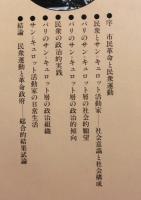 ●序 市民革命と民衆運動
●民衆とサン・キュロット活動家――社会意識と社会構成
●パリのサン・キュロット層の社会的願望
●パリのサン・キュロット層の政治的傾向
●民衆の政治的実践
●パリのサン・キュロット層の政治組織
●サン・キュロット活動家の日常生活
●結論 民衆運動と革命政府――総合的結果試論